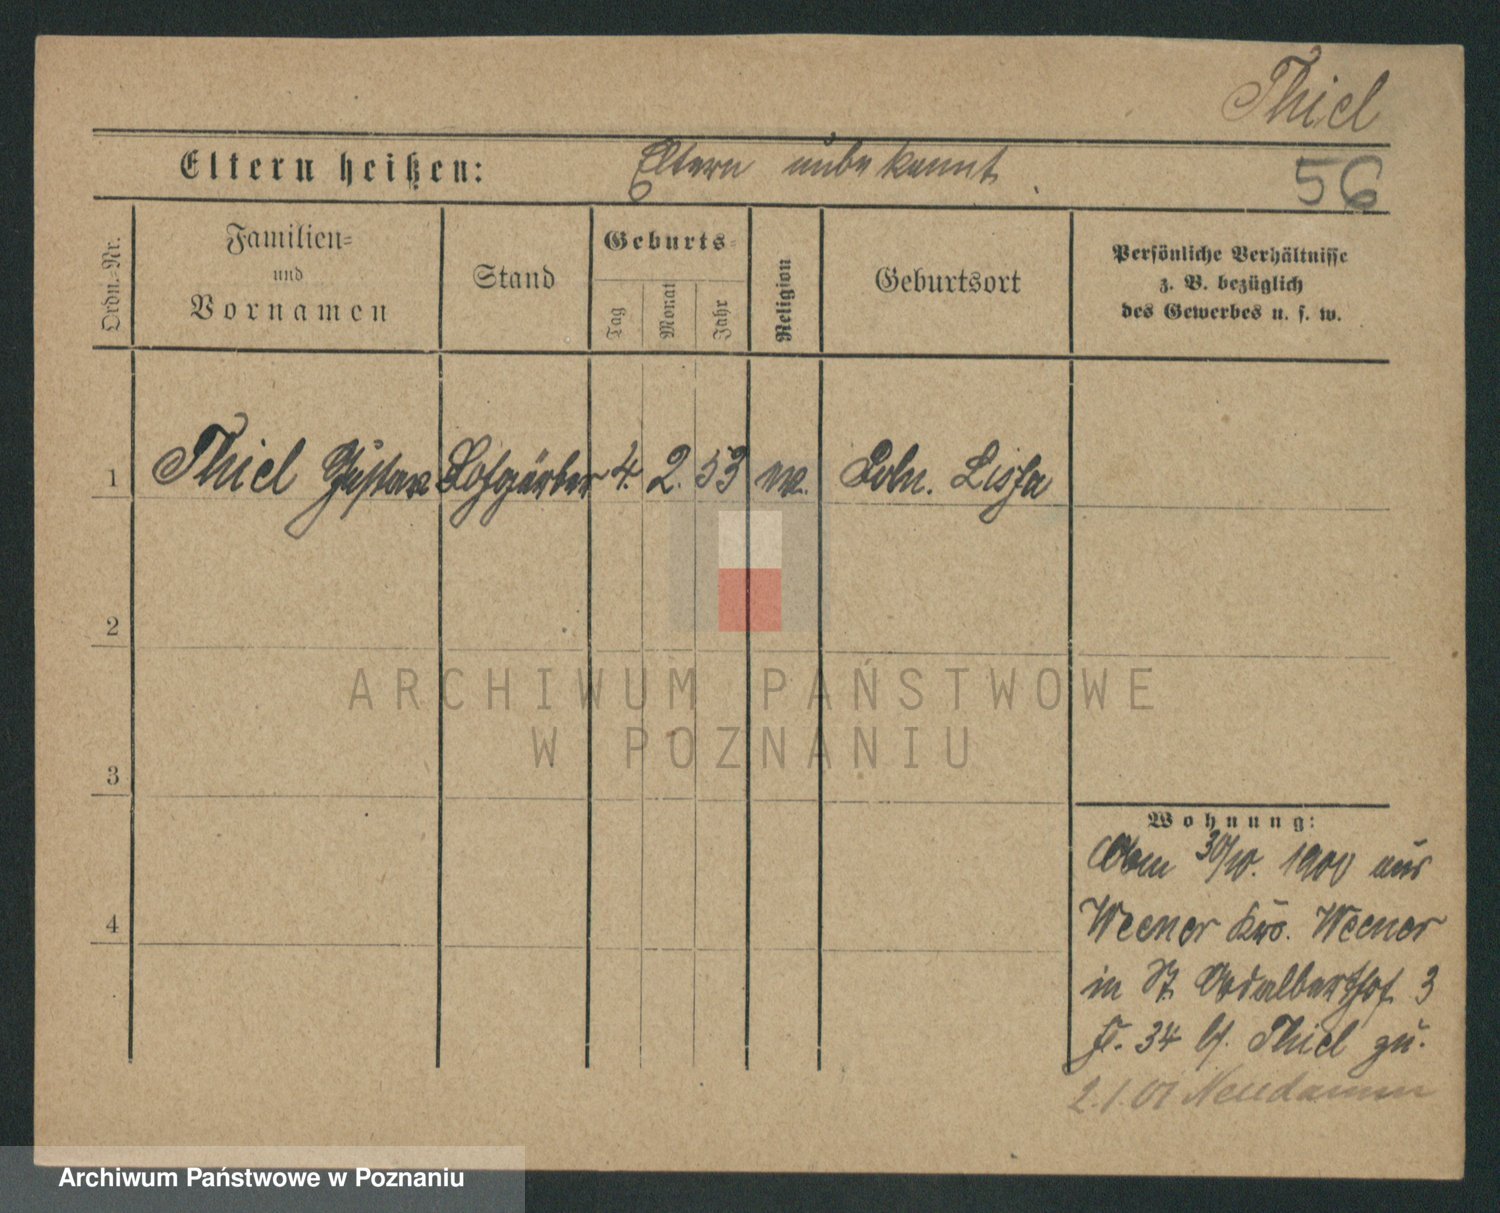 Thiel
Eltern heißen: Eltern unbekannt.
56
Ordn.-Nr.
Familien-
und
Vornamen
Stand
Geburts-
Tag
Monat
Jahr
Religion
Geburtsort
Persönliche Verhältnisse
z. B. bezüglich
des Gewerbes u. s. w.
1 Thiel Gustav Lohgärber 4. 2. 53 Poln. Lissa
2
3
4
Wohnung:
30/10. 1900 aus
Weener Krs. Weener
in St. Adalberthof 3
34 Thiel zu.
2.1.01 Neudamm
ARCHIWUM PAŃSTWOWE
W POZNANIU
Archiwum Państwowe w Poznaniu